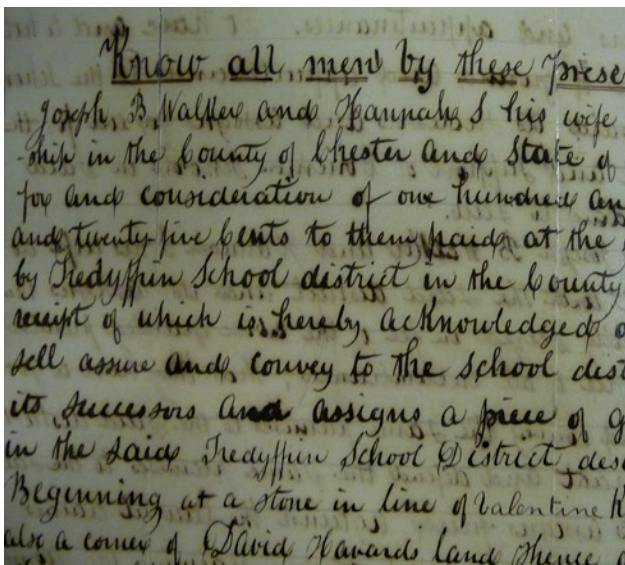 Know all men by these prese
Joseph B Walker and Hannah S his wife
-ship in the County of Chester and State of
for and consideration of one hundred an
and twenty-five Cents to them paid at the
by Tredyffrin School district in the County
receipt of which is hereby acknowledged
sell assure and convey to the school dist
its successors and assigns a piece of g
in the said Tredyffrin School District des
Beginning at a stone in line of Valentine K
also a corner of David Havards land thence